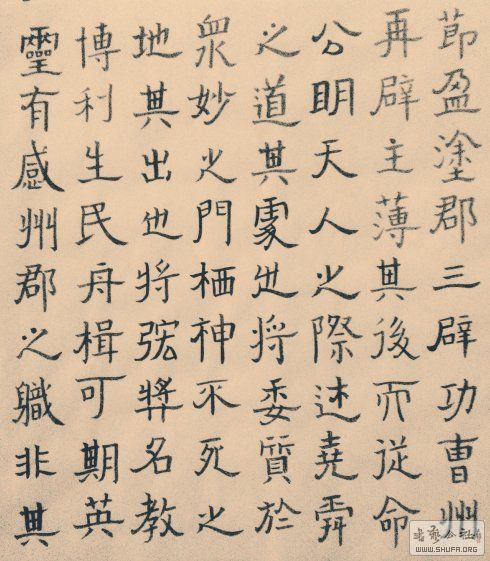 莭盈塗郡三辟功曹州
再辟主薄其後而從命
公明天人之際述堯舜
之道其處也將委質於
衆妙之門栖神不死之
地其出也將弘獎名教
博利生民舟楫可期英
靈有感州郡之職非其
WWW.SHUFA.ORG